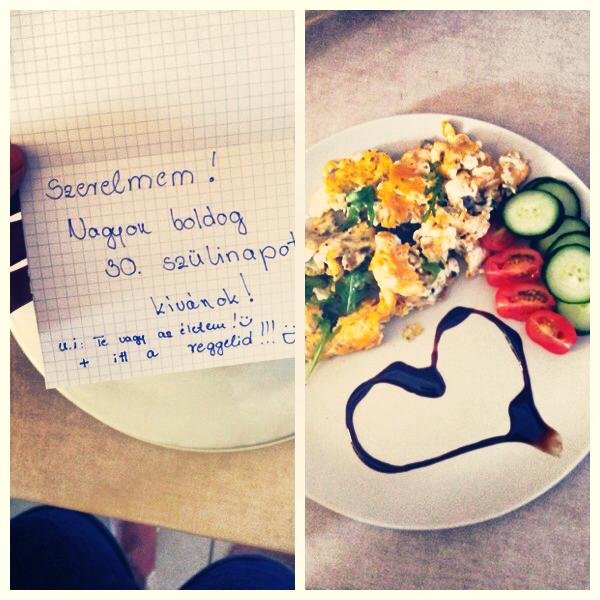 Szerelmem!
Nagyon boldog
30. szülinapot
kivánok!
u.i: Te vagy az életem!
+ itt a reggelid!!!